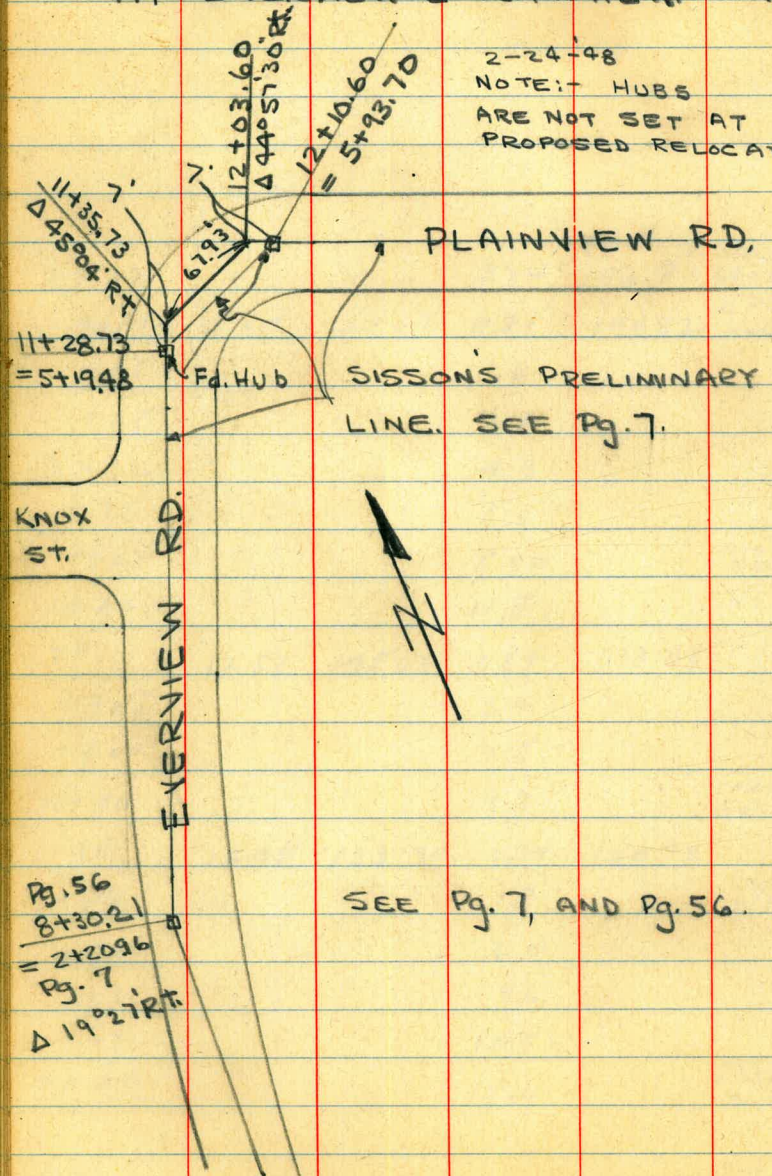 2-24-'48
NOTE:- HUBS
ARE NOT SET AT
PROPOSED
12+03.60
Δ 44°57'30" Rt.
12+10.60
= 5+93.70
7'
7'
11+35.73
Δ 45°04' Rt
67.93'
PLAINVIEW RD.
11+28.73
=5+19.48
Fd. Hub
SISSON'S PRELIMINARY
LINE. SEE Pg. 7.
KNOX
ST.
N
EVERVIEW RD.
Pg. 56
8+30.21
= 2+20.96
Pg. 7
Δ 19°27' Rt.
SEE Pg. 7, AND Pg. 56.